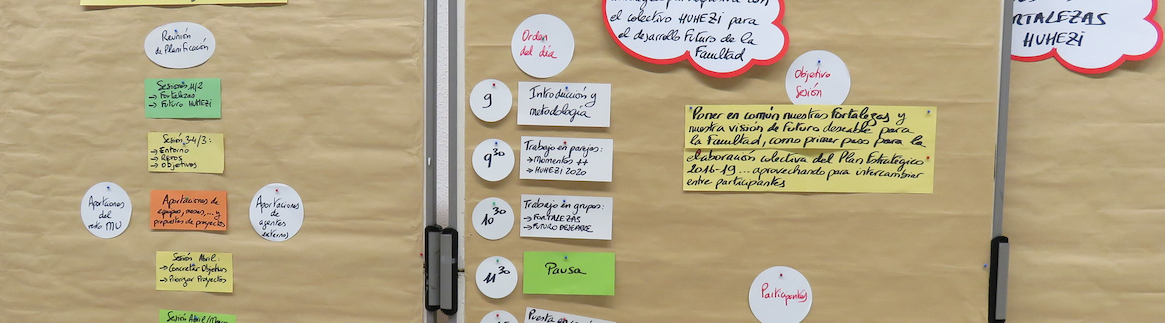 Reunión
de Planificación
Sesiones 1/2
→ Fortalezas
→ Futuro HUHEZI
Sesión 3-4/3:
→ Entorno
→ Retos
→ Objetivos
Aportaciones
del
resto MU
Aportaciones de
equipos, mesas, ... y
propuestas de proyectos
Aportaciones
de
agentes
externos
Sesión Abril:
→ Concretar Objetivos
→ Priorizar Proyectos
Sesión Abril/Mayo
Orden
del día
9
Introducción y
metodología
9 30
Trabajo en parejas:
→ Momentos ++
→ HUHEZI 2020
10 30
Trabajo en grupos:
→ FORTALEZAS
→ FUTURO DESEABLE
11 30
Pausa
Puesta en
con
el colectivo HUHEZI para
el desarrollo Futuro de la
Facultad
Objetivo
Sesión
Poner en común nuestras Fortalezas y
nuestra visión de Futuro deseable para
la Facultad, como primer paso para la
elaboración colectiva del Plan Estratégico
2016-19 ... aprovechando para intercambiar
entre participantes
Participantes
FORTALEZAS
HUHEZI